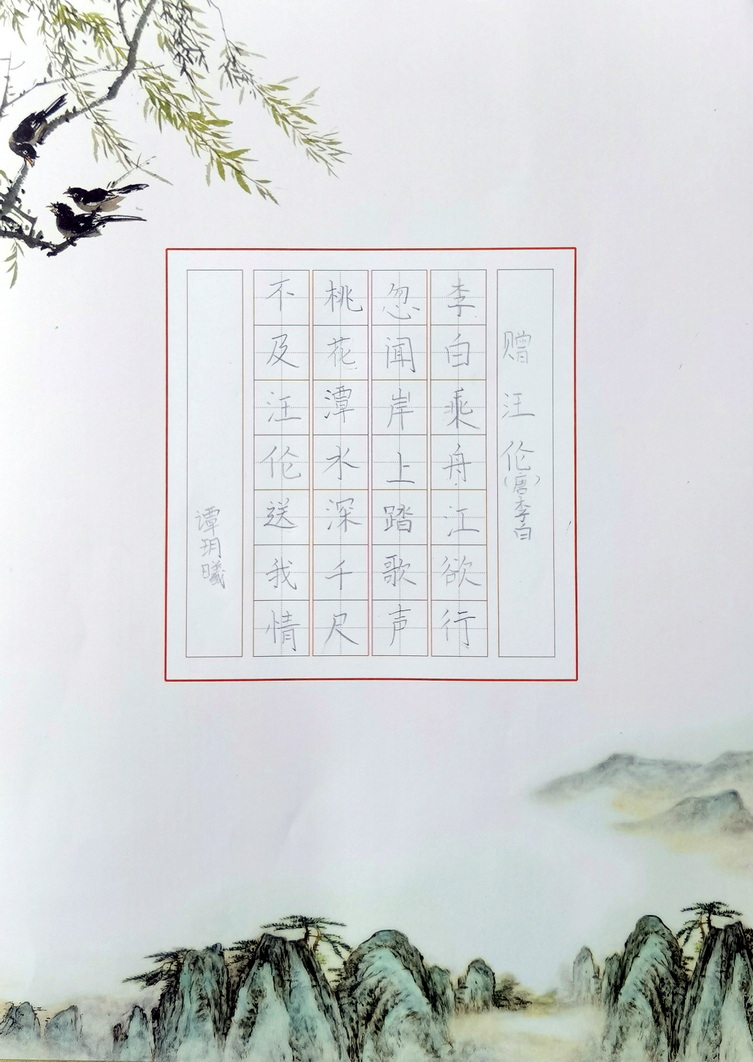 赠汪伦(唐)李白
李白乘舟江欲行
忽闻岸上踏歌声
桃花潭水深千尺
不及汪伦送我情
谭玥曦